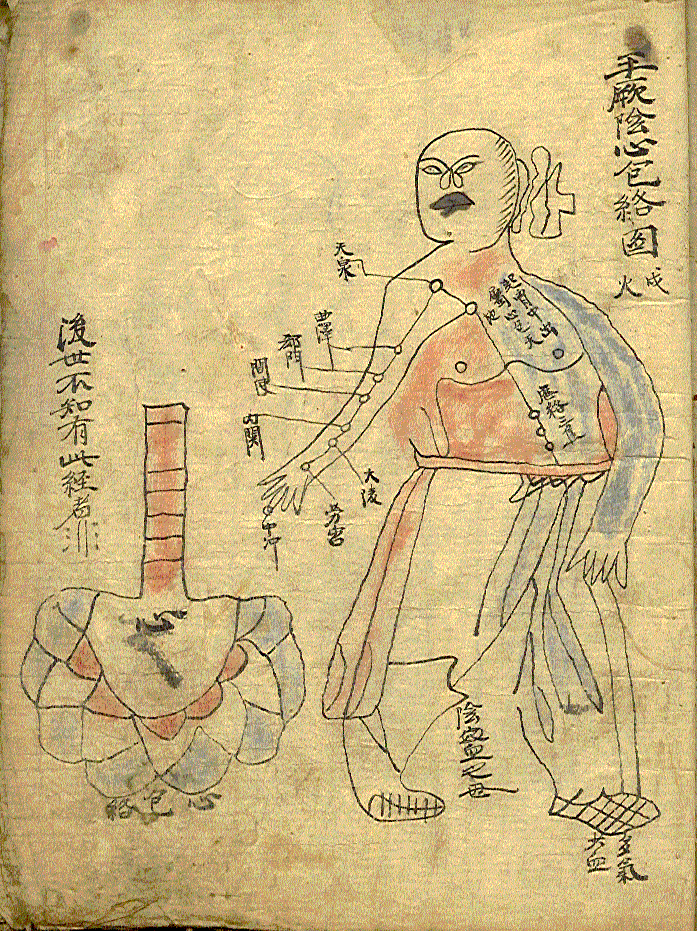 手厥陰心包絡圖
戌火
起胃中出
屬心包
天池
歷絡三焦
天泉
曲澤
郄門
間使
内関
大陵
労宮
中冲
後世不知有此經者非
心
心包絡
多氣
少血